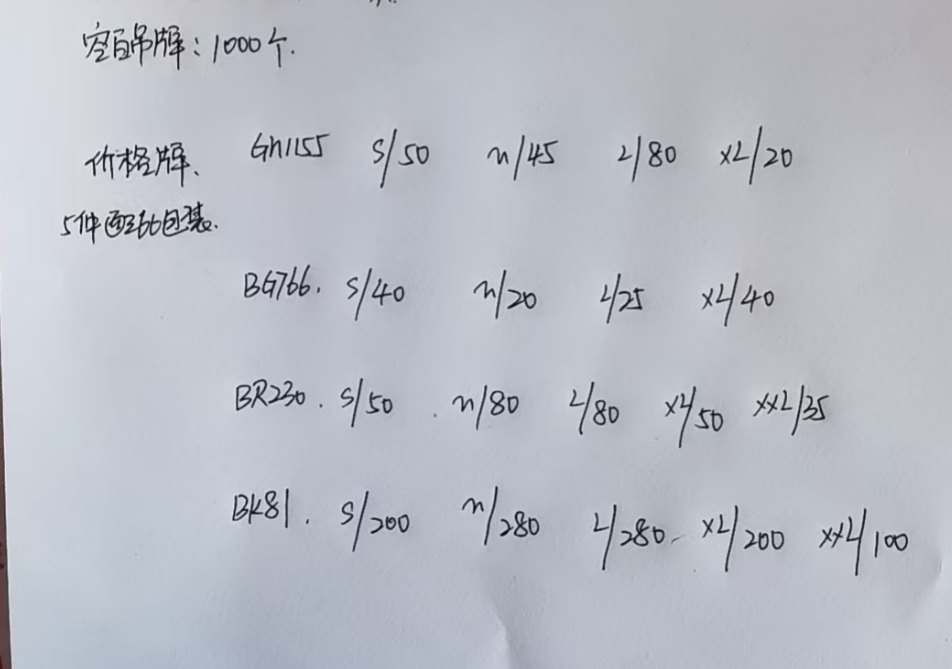 空白吊牌：1000个.
价格牌、 GN1155 S/50 M/45 L/80 XL/20
5件配366包装.
BG766. S/40 M/20 L/25 XL/40
BR230. S/50 . M/80 L/80 XL/50 XXL/35
BK81. S/200 M/280 L/280 XL/200 XXL/100